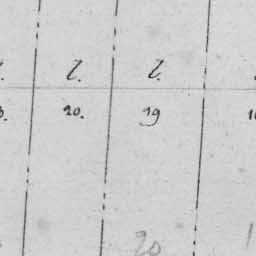 l. l.
20. 19
20